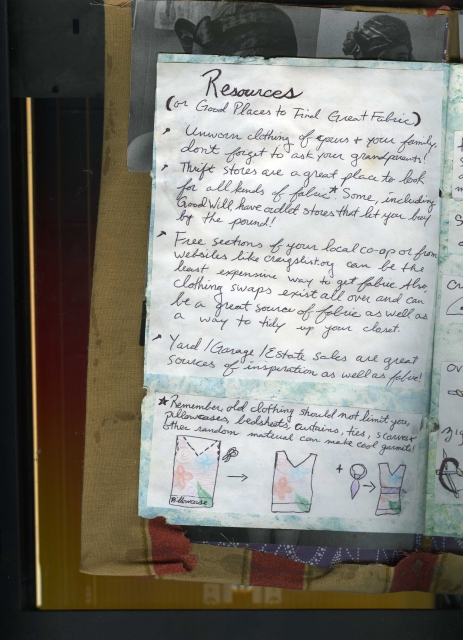 Resources
(or Good Places to Find Great Fabric)
Unworn clothing of yours + your family,
don't forget to ask your grandparents!
Thrift stores are a great place to look
for all kinds of fabric.* Some, including
GoodWill, have outlet stores that let you buy
by the pound!
Free sections of your local co-op or from
websites like craigslist.org can be the
least expensive way to get fabric. Also,
clothing swaps exist all over and can
be a great source of fabric as well as
a way to tidy up your closet.
Yard/Garage/Estate Sales are great
sources of inspiration as well as fabric!
★ Remember, old clothing should not limit you,
pillowcases, bedsheets, curtains, ties, scarves +
other random material can make cool garmets!
+
Pillowcase